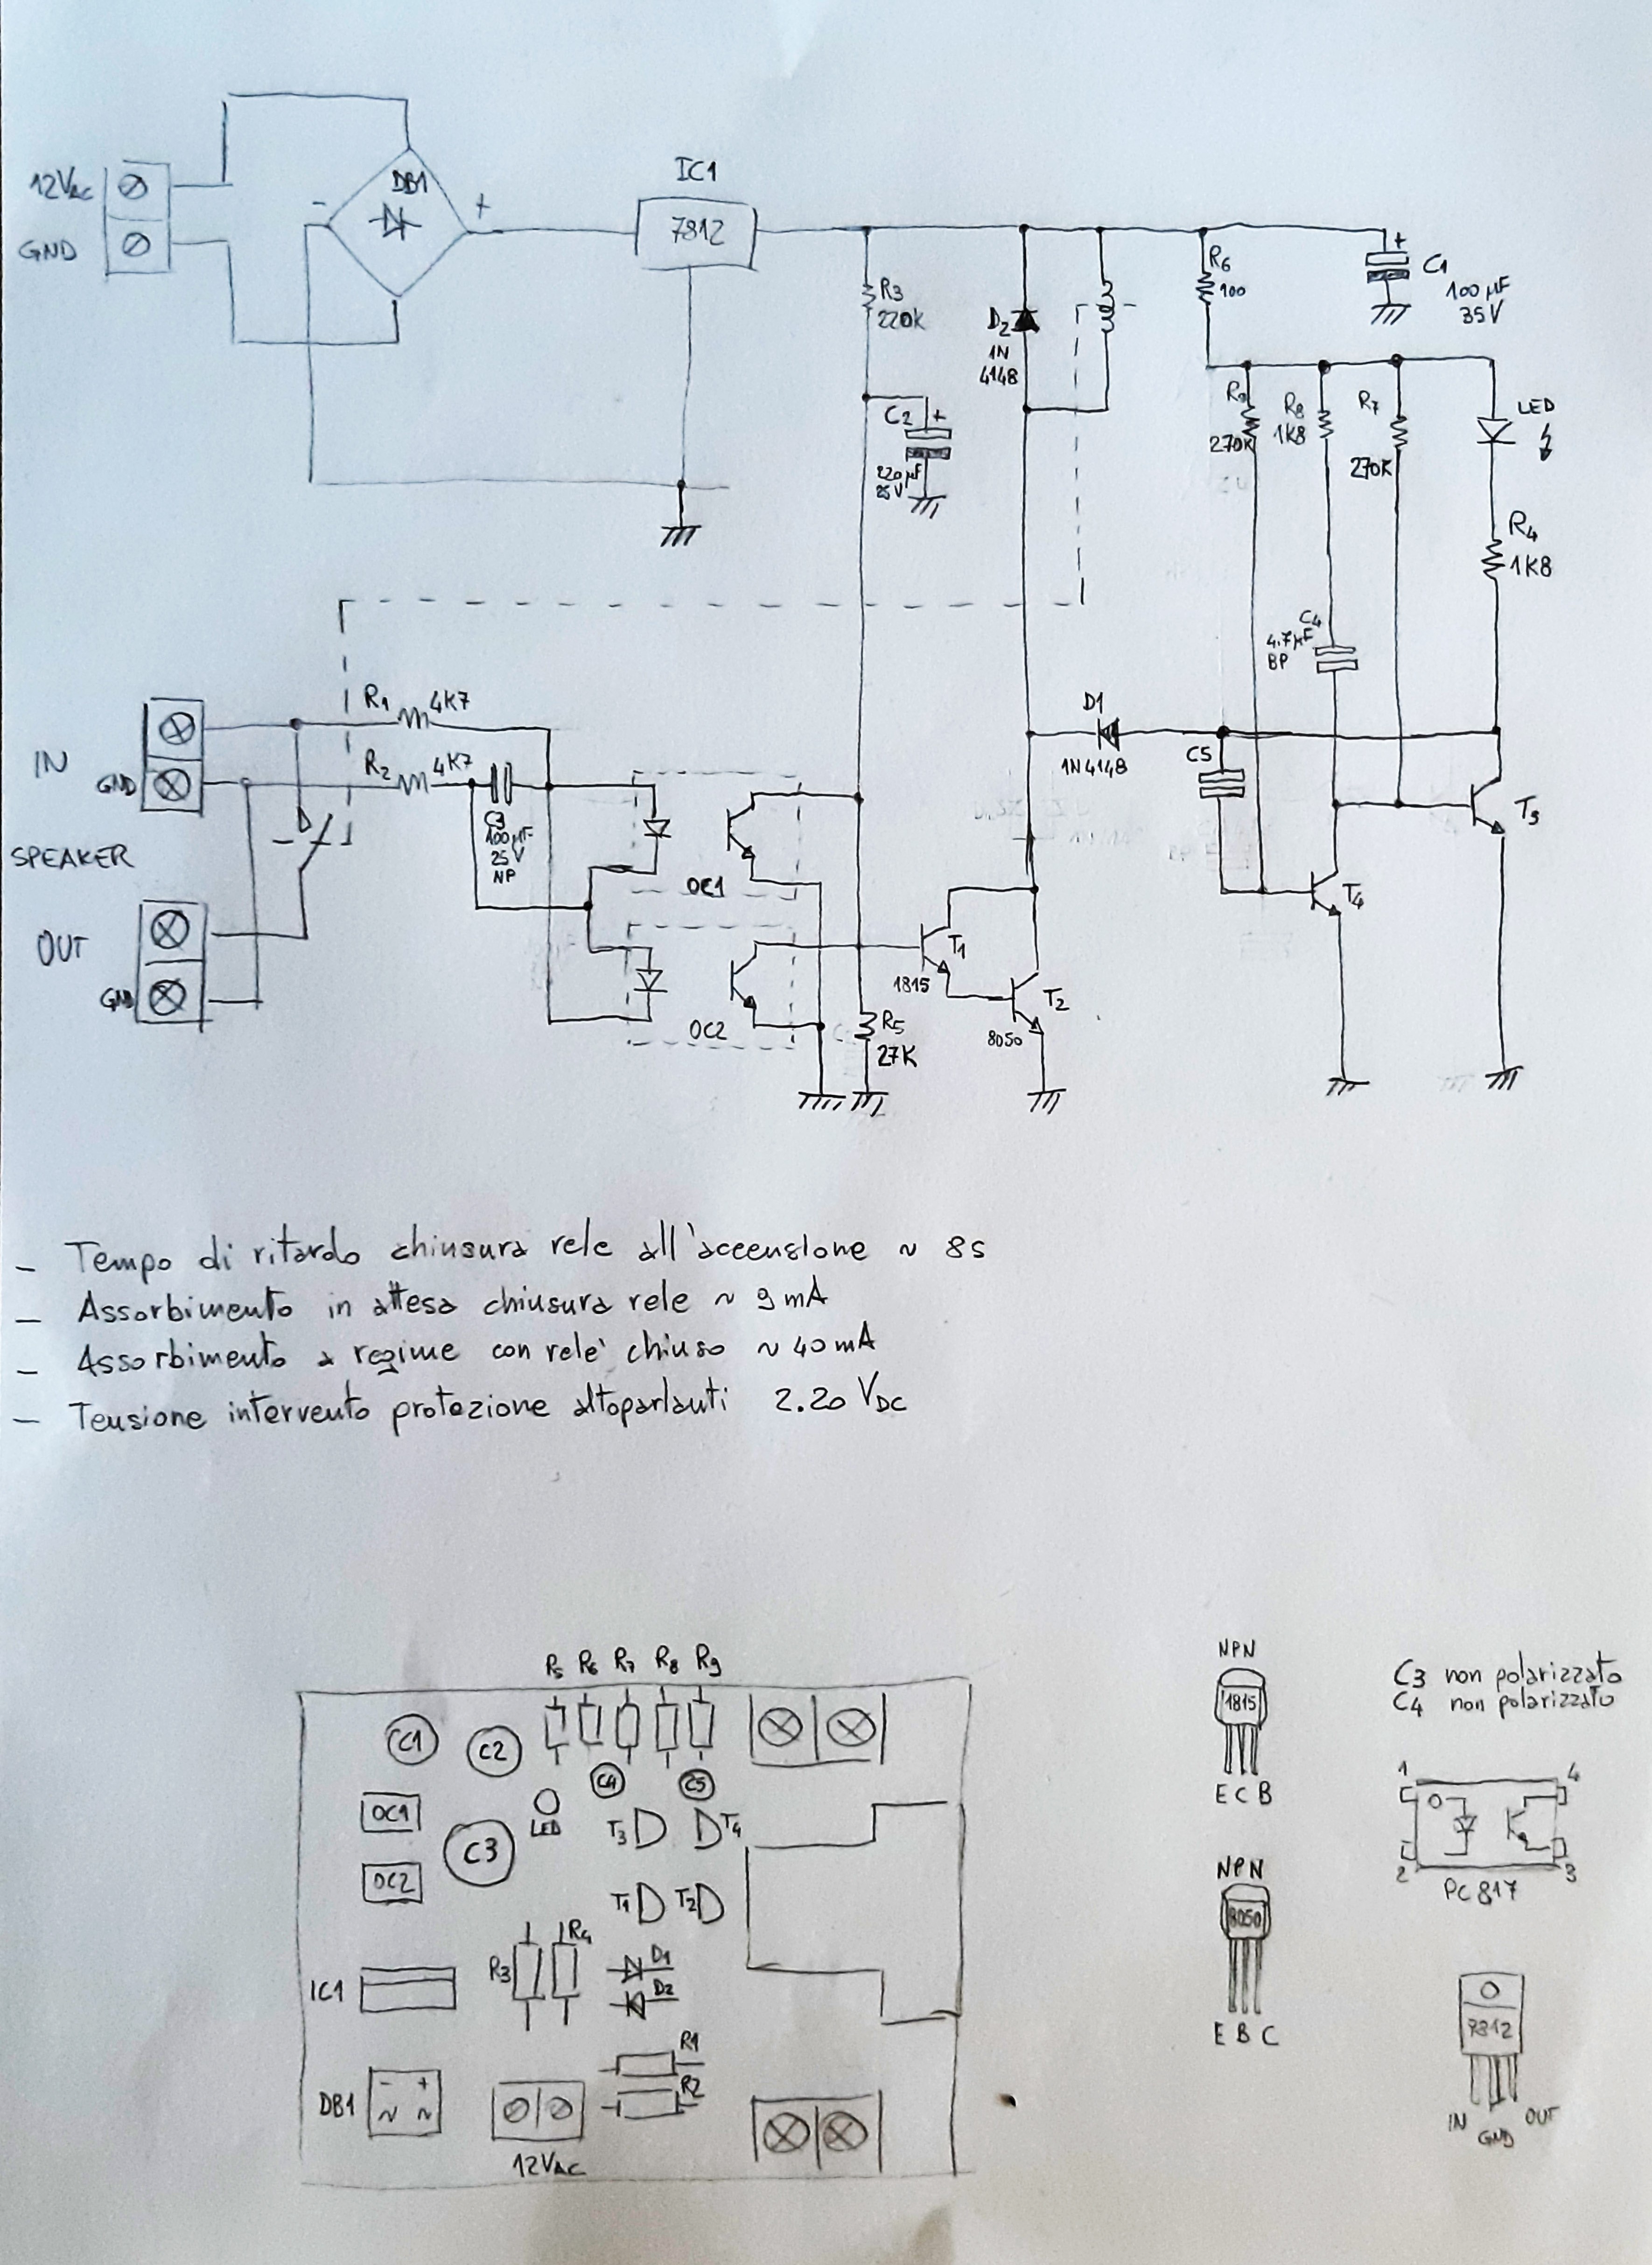 12VAC
GND
DB1
-
+
IC1
7812
R3
220K
C2
+
220µF
25V
D2
1N
4148
R6
100
+
C1
100µF
35V
R9
270K
R8
1K8
R7
270K
LED
R4
1K8
C4
4.7µF
BP
IN
GND
SPEAKER
OUT
GND
R1
4K7
R2
4K7
C3
100µF
25V
NP
OC1
OC2
D1
1N4148
C5
T3
T4
T1
1815
T2
8050
R5
27K
- Tempo di ritardo chiusura rele all'accensione ~ 8s
- Assorbimento in attesa chiusura rele ~ 9mA
- Assorbimento a regime con rele' chiuso ~ 40mA
- Tensione intervento protezione altoparlanti 2.20 VDC
R5 R6 R7 R8 R9
C1
C2
C4
C5
OC1
LED
T3
T4
C3
OC2
T1
T2
R3
R4
D1
D2
IC1
R1
R2
DB1
- +
~ ~
12VAC
NPN
1815
E C B
NPN
8050
E B C
C3 non polarizzato
C4 non polarizzato
1
4
2
3
PC817
7812
IN
GND
OUT